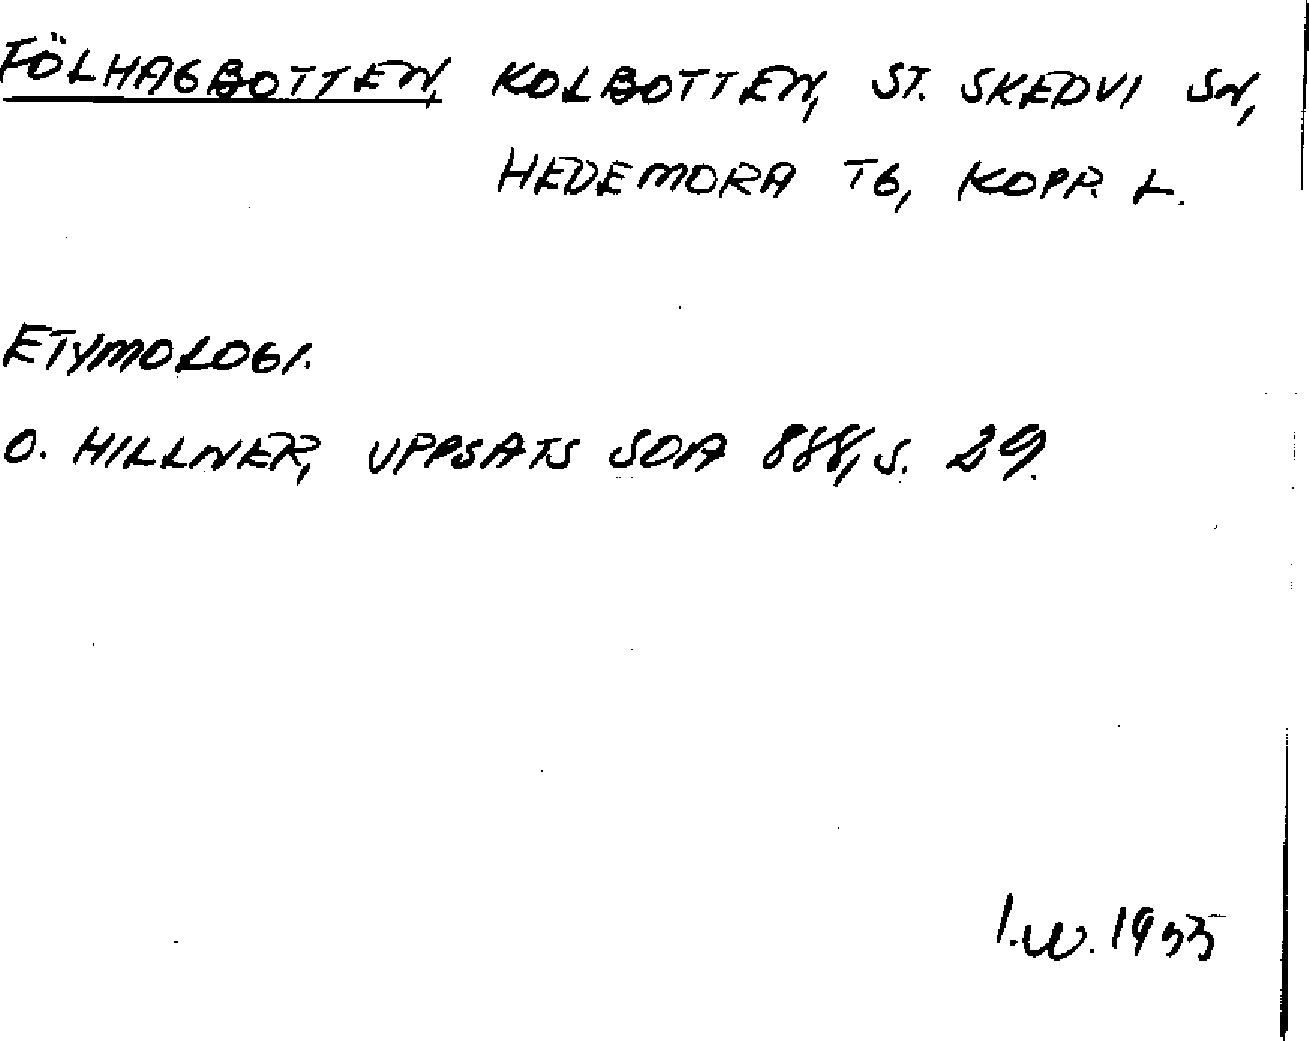 FÖLHAGBOTTEN, KOLBOTTEN, ST. SKEDVI SN,
HEDEMORA TG, KOPP. L.
ETYMOLOGI.
O. HILLNER, UPPSATS SOA 888, S. 29.
I.W. 1955